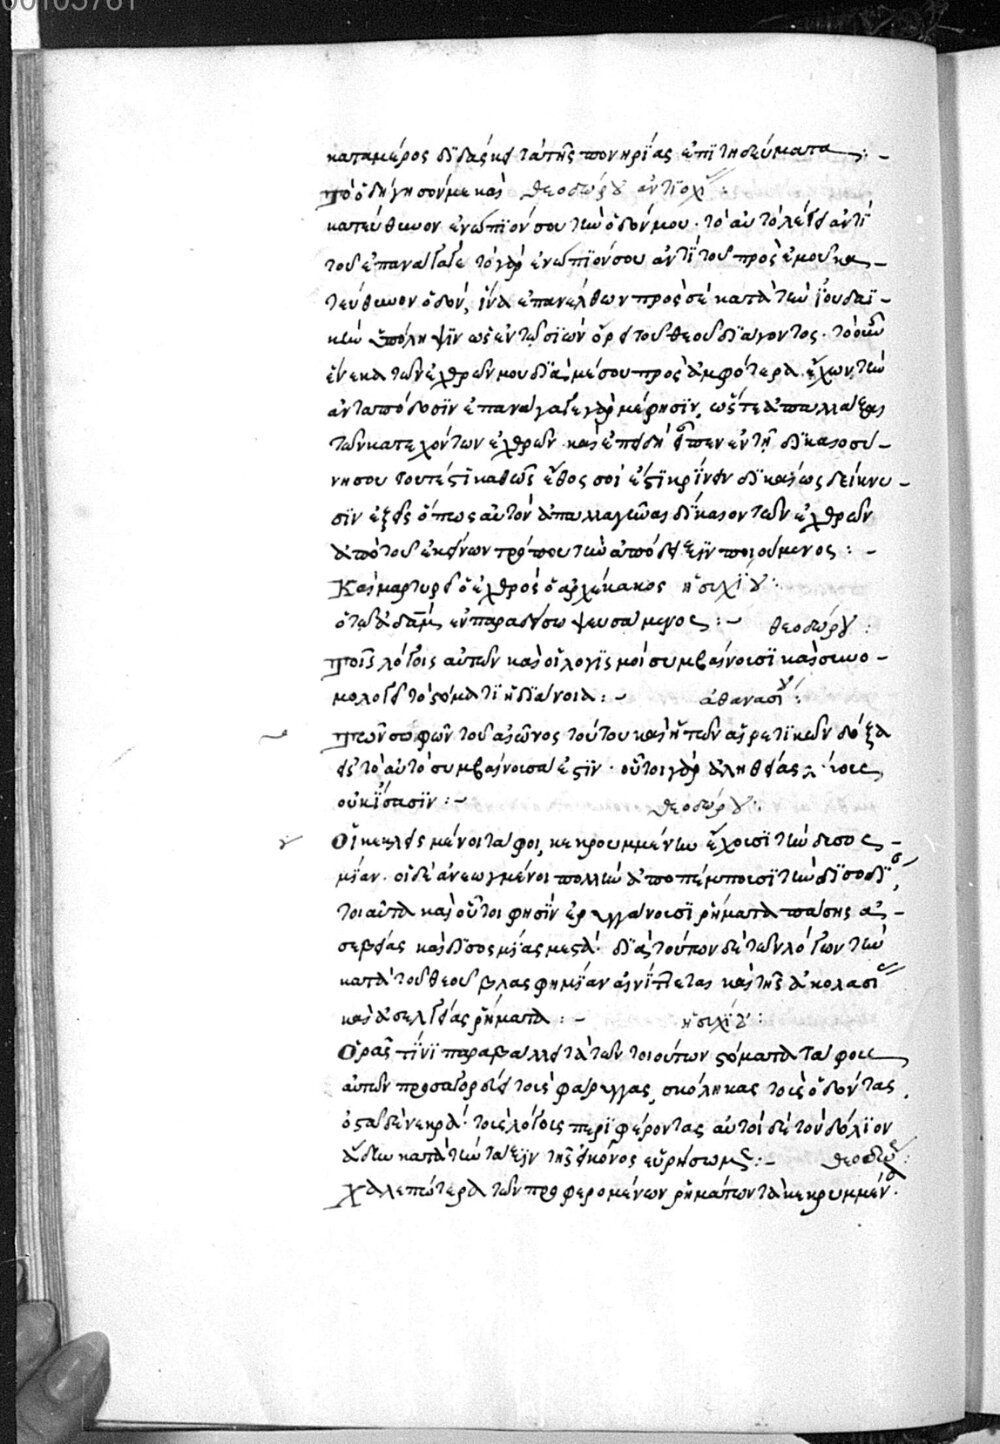 καταμέρος διδάσκει τὰ τῆς πονηρίας ἐπιτηδεύματα :-
Τὸ ὁδήγησόν με καὶ θεοδώρου ἀντιοχ :
κατεύθυνον ἐνώπιόν σου τὴν ὁδόν μου· τὸ αὐτὸ λέγει ἀντὶ
τοῦ ἐπανάγαγε τὸ γὰρ ἐνώπιόν σου ἀντὶ τοῦ πρὸς ἐμοῦ κα-
τεύθυνον ὁδόν, ἵνα ἐπανέλθων πρὸς σὲ κατὰ τὴν ἰουδαϊ-
κὴν ὑπόληψιν ὡς ἐν τῷ σιὼν ὄρει τοῦ θεοῦ διάγοντος· τὸ οὖν
ἕνεκα τῶν ἐχθρῶν μου διὰ μέσου πρὸς ἀμφότερα ἔχων, τὴν
ἀνταπόδοσιν ἐπανάγαγε γὰρ με φησὶν, ὥστε ἀπαλλάξαι
τῶν κατεχόντων ἐχθρῶν· καὶ ἐπειδὴ εἶπεν ἐν τῇ δικαιοσύ-
νῃ σου τουτέστι καθὼς ἔθος σοι ἐστὶ κρίνειν δικαίως δείκνυ-
σιν ἑξῆς ὅπως αὐτὸν ἀπαλλαγῆναι δίκαιον τῶν ἐχθρῶν
ἀπὸ τοῦ ἐκείνων τρόπου τὴν ἀπόδειξιν ποιούμενος : -
Καὶ μαρτυρεῖ ὁ ἐχθρὸς ὁ ἀρχέκακος ἡσυχίου :
ὁ τῷ ἀδὰμ ἐν παραδείσω ψευσάμενος :- θεοδώρου :
Τοῖς λόγοις αὐτῶν καὶ οἱ λογισμοὶ συμβαίνουσι καὶ συνο-
μολογεῖ τὸ στόματι ἡ διάνοια : - ἀθανασίου :
Τῶν σοφῶν τοῦ αἰῶνος τούτου καὶ ἡ τῶν αἱρετικῶν δόξα
εἰς τὸ αὐτὸ συμβαίνουσα ἐστίν· οὗτοι γὰρ ἀληθείας
οὐκ ἴσασιν : - θεοδώρου :
Οἱ κεκλεισμένοι τάφοι, κεκρυμμένην ἔχουσι τὴν δυσο-
μίαν· οἱ δὲ ἀνεωγμένοι πολλὴν ἀποπέμπουσι τὴν δυσοδί,
τοιαῦτα καὶ οὗτοι φησὶν ἐρευγαίνουσι ῥήματα πάσης ἀ-
σεβείας καὶ δυσοσμίας μεστά· διὰ τούτων δὲ τῶν λόγων τὴν
κατὰ τοῦ θεοῦ βλασφημίαν αἰνίττεται καὶ τῆς ἀκολασί
καὶ ἀσελγείας ῥήματα : - ἡσυχίου :
Ὁρᾷς τίνι παραβάλλει τὰ τῶν τοιούτων στόματα τάφους
αὐτῶν προσαγορεύει τοὺς φάρυγγας, σκόληκας τοὺς ὀδόντας,
ὀστᾶ δὲ νεκρὰ τοὺς λόγοις περιφέροντας αὐτοὶ δὲ τὸν δόλιον
ἄδην κατὰ τὴν τάξιν τῆς εἰκόνος εὑρήσωμεν :- θεοδώ :
Χαλεπώτερα τῶν προφερομένων ῥημάτων τὰ κεκρυμμέν